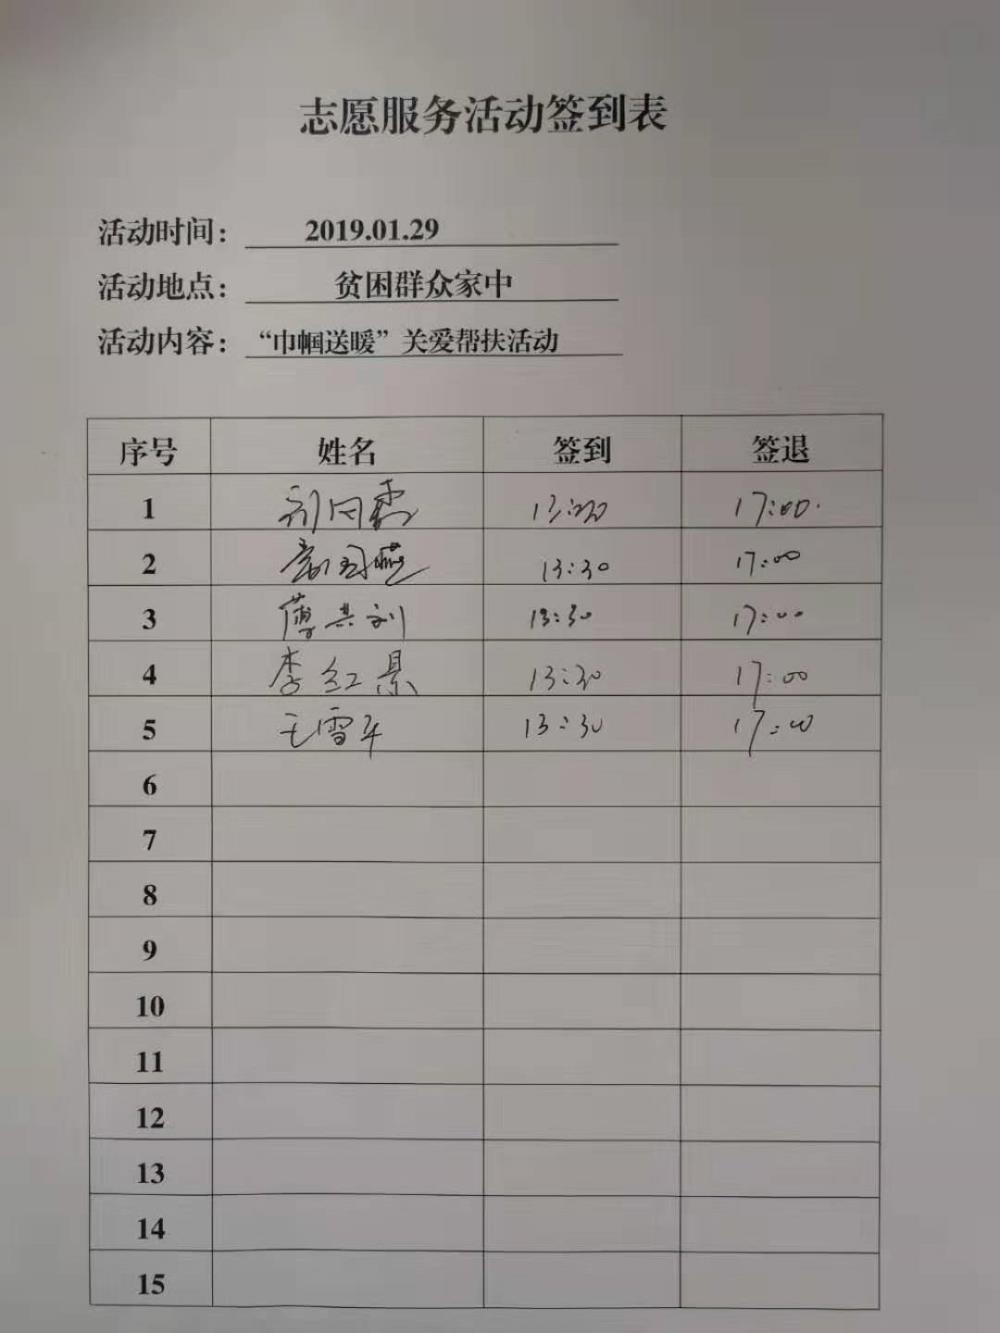 志愿服务活动签到表
活动时间： 2019.01.29
活动地点： 贫困群众家中
活动内容： “巾帼送暖”关爱帮扶活动
序号 姓名 签到 签退
1 13:30 17:00
2 13:30 17:00
3 13:30 17:00
4 李红景 13:30 17:00
5 王雪平 13:30 17:00
6
7
8
9
10
11
12
13
14
15